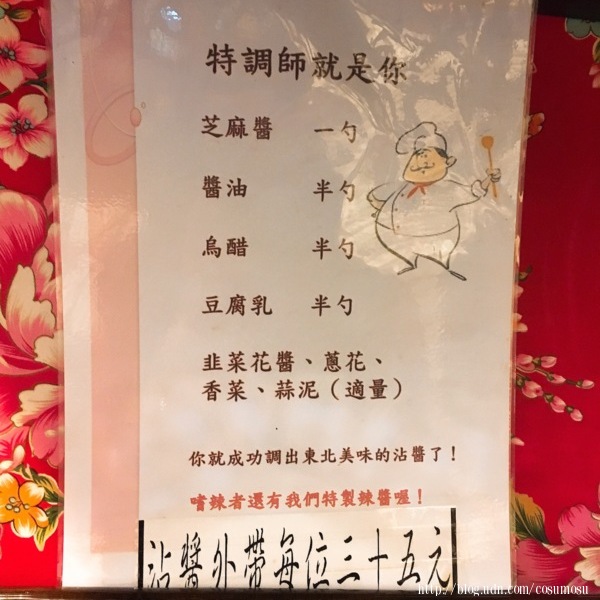 特調師就是你
芝麻醬 一勺
醬油 半勺
烏醋 半勺
豆腐乳 半勺
韭菜花醬、蔥花、
香菜、蒜泥（適量）
你就成功調出東北美味的沾醬了！
嗜辣者還有我們特製辣醬喔！
沾醬外帶每位三十五元
http://blog.udn.com/cosumosu